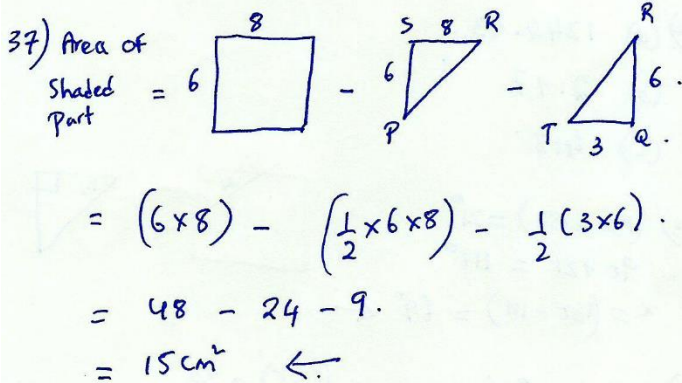 37) Area of
Shaded
Part
= 6 8 - S 8 R 6 P - R 6 T 3 Q .
= (6 × 8) - (1/2 × 6 × 8) - 1/2 (3 × 6) .
= 48 - 24 - 9 .
= 15 cm² ←